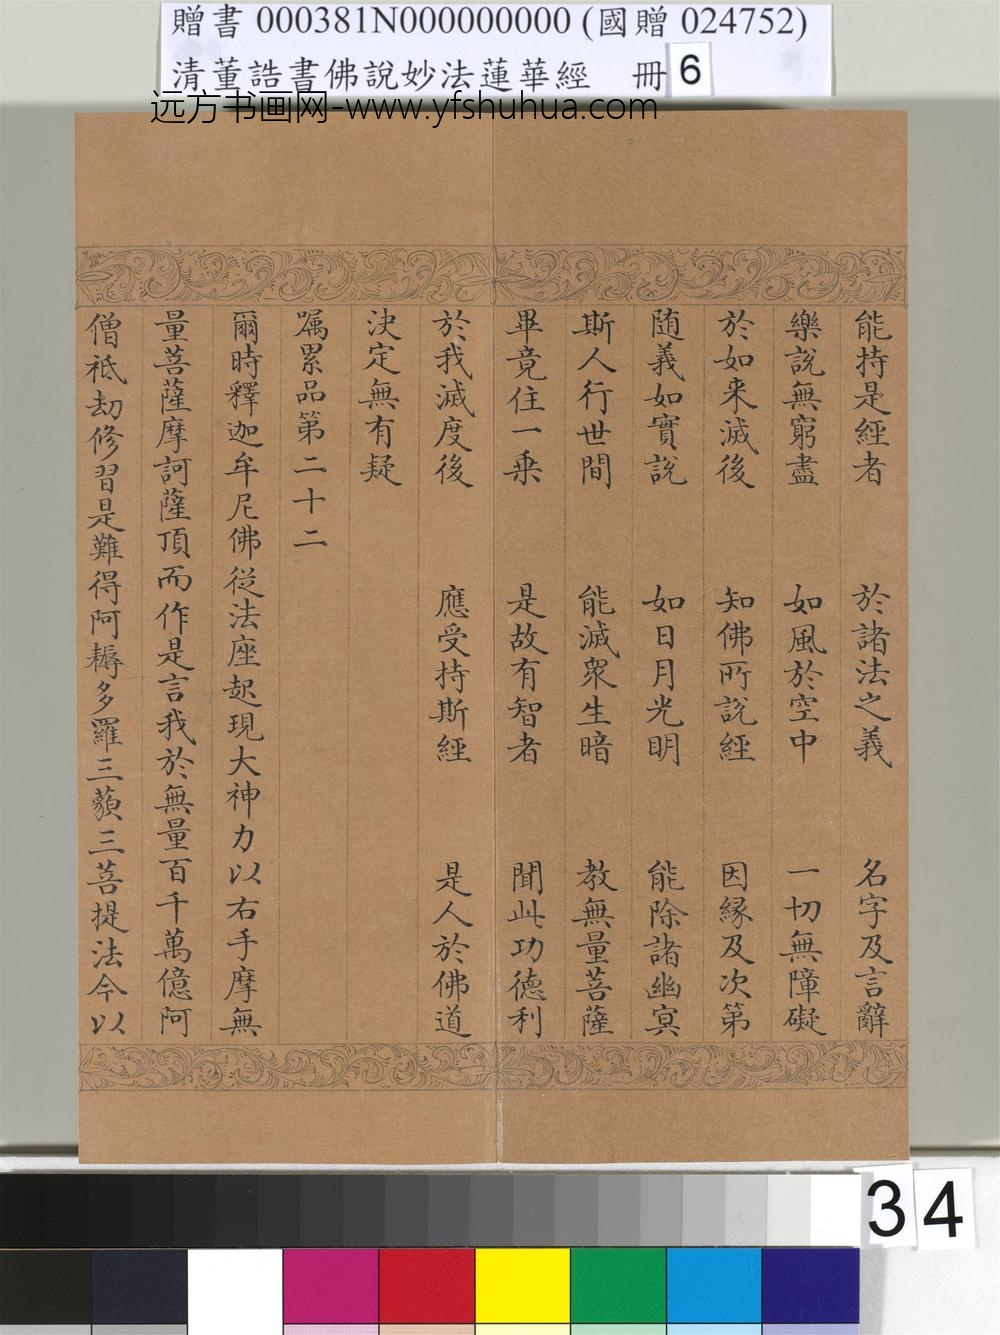 贈書 000381N000000000 (國贈 024752)
清董誥書佛說妙法蓮華經 冊 6
远方书画网-www.yfshuhua.com
能持是經者 於諸法之義 名字及言辭
樂說無窮盡 如風於空中 一切無障礙
於如来滅後 知佛所說經 因緣及次第
随義如實說 如日月光明 能除諸幽冥
斯人行世間 能滅眾生暗 教無量菩薩
畢竟住一乘 是故有智者 聞此功德利
於我滅度後 應受持斯經 是人於佛道
決定無有疑
嘱累品第二十二
爾時釋迦牟尼佛從法座起現大神力以右手摩無
量菩薩摩訶薩頂而作是言我於無量百千萬億阿
僧祇劫修習是難得阿耨多羅三藐三菩提法今以
34